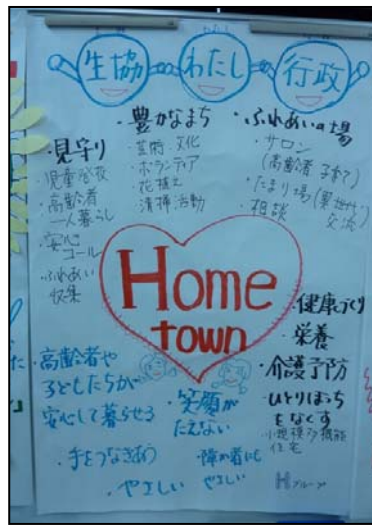 生協 わたし 行政
・見守り
児童登校
・高齢者
一人暮らし
・安心
コール
・ふれあい
収集
・豊かなまち
・芸術・文化
・ボランティア
・花植え
・清掃活動
・ふれあいの場
・サロン
(高齢者 子育て)
・たまり場(異世代
交流)
・相談
Home
town
・健康づくり
・栄養
・介護予防
・ひとりぼっち
をなくす
小規模多機能
住宅
・高齢者や
子どもたちが
安心して暮らせる
・笑顔が
たえない
・手をつなぎあう
・障が者にも
やさしい
・やさしい
Hグループ